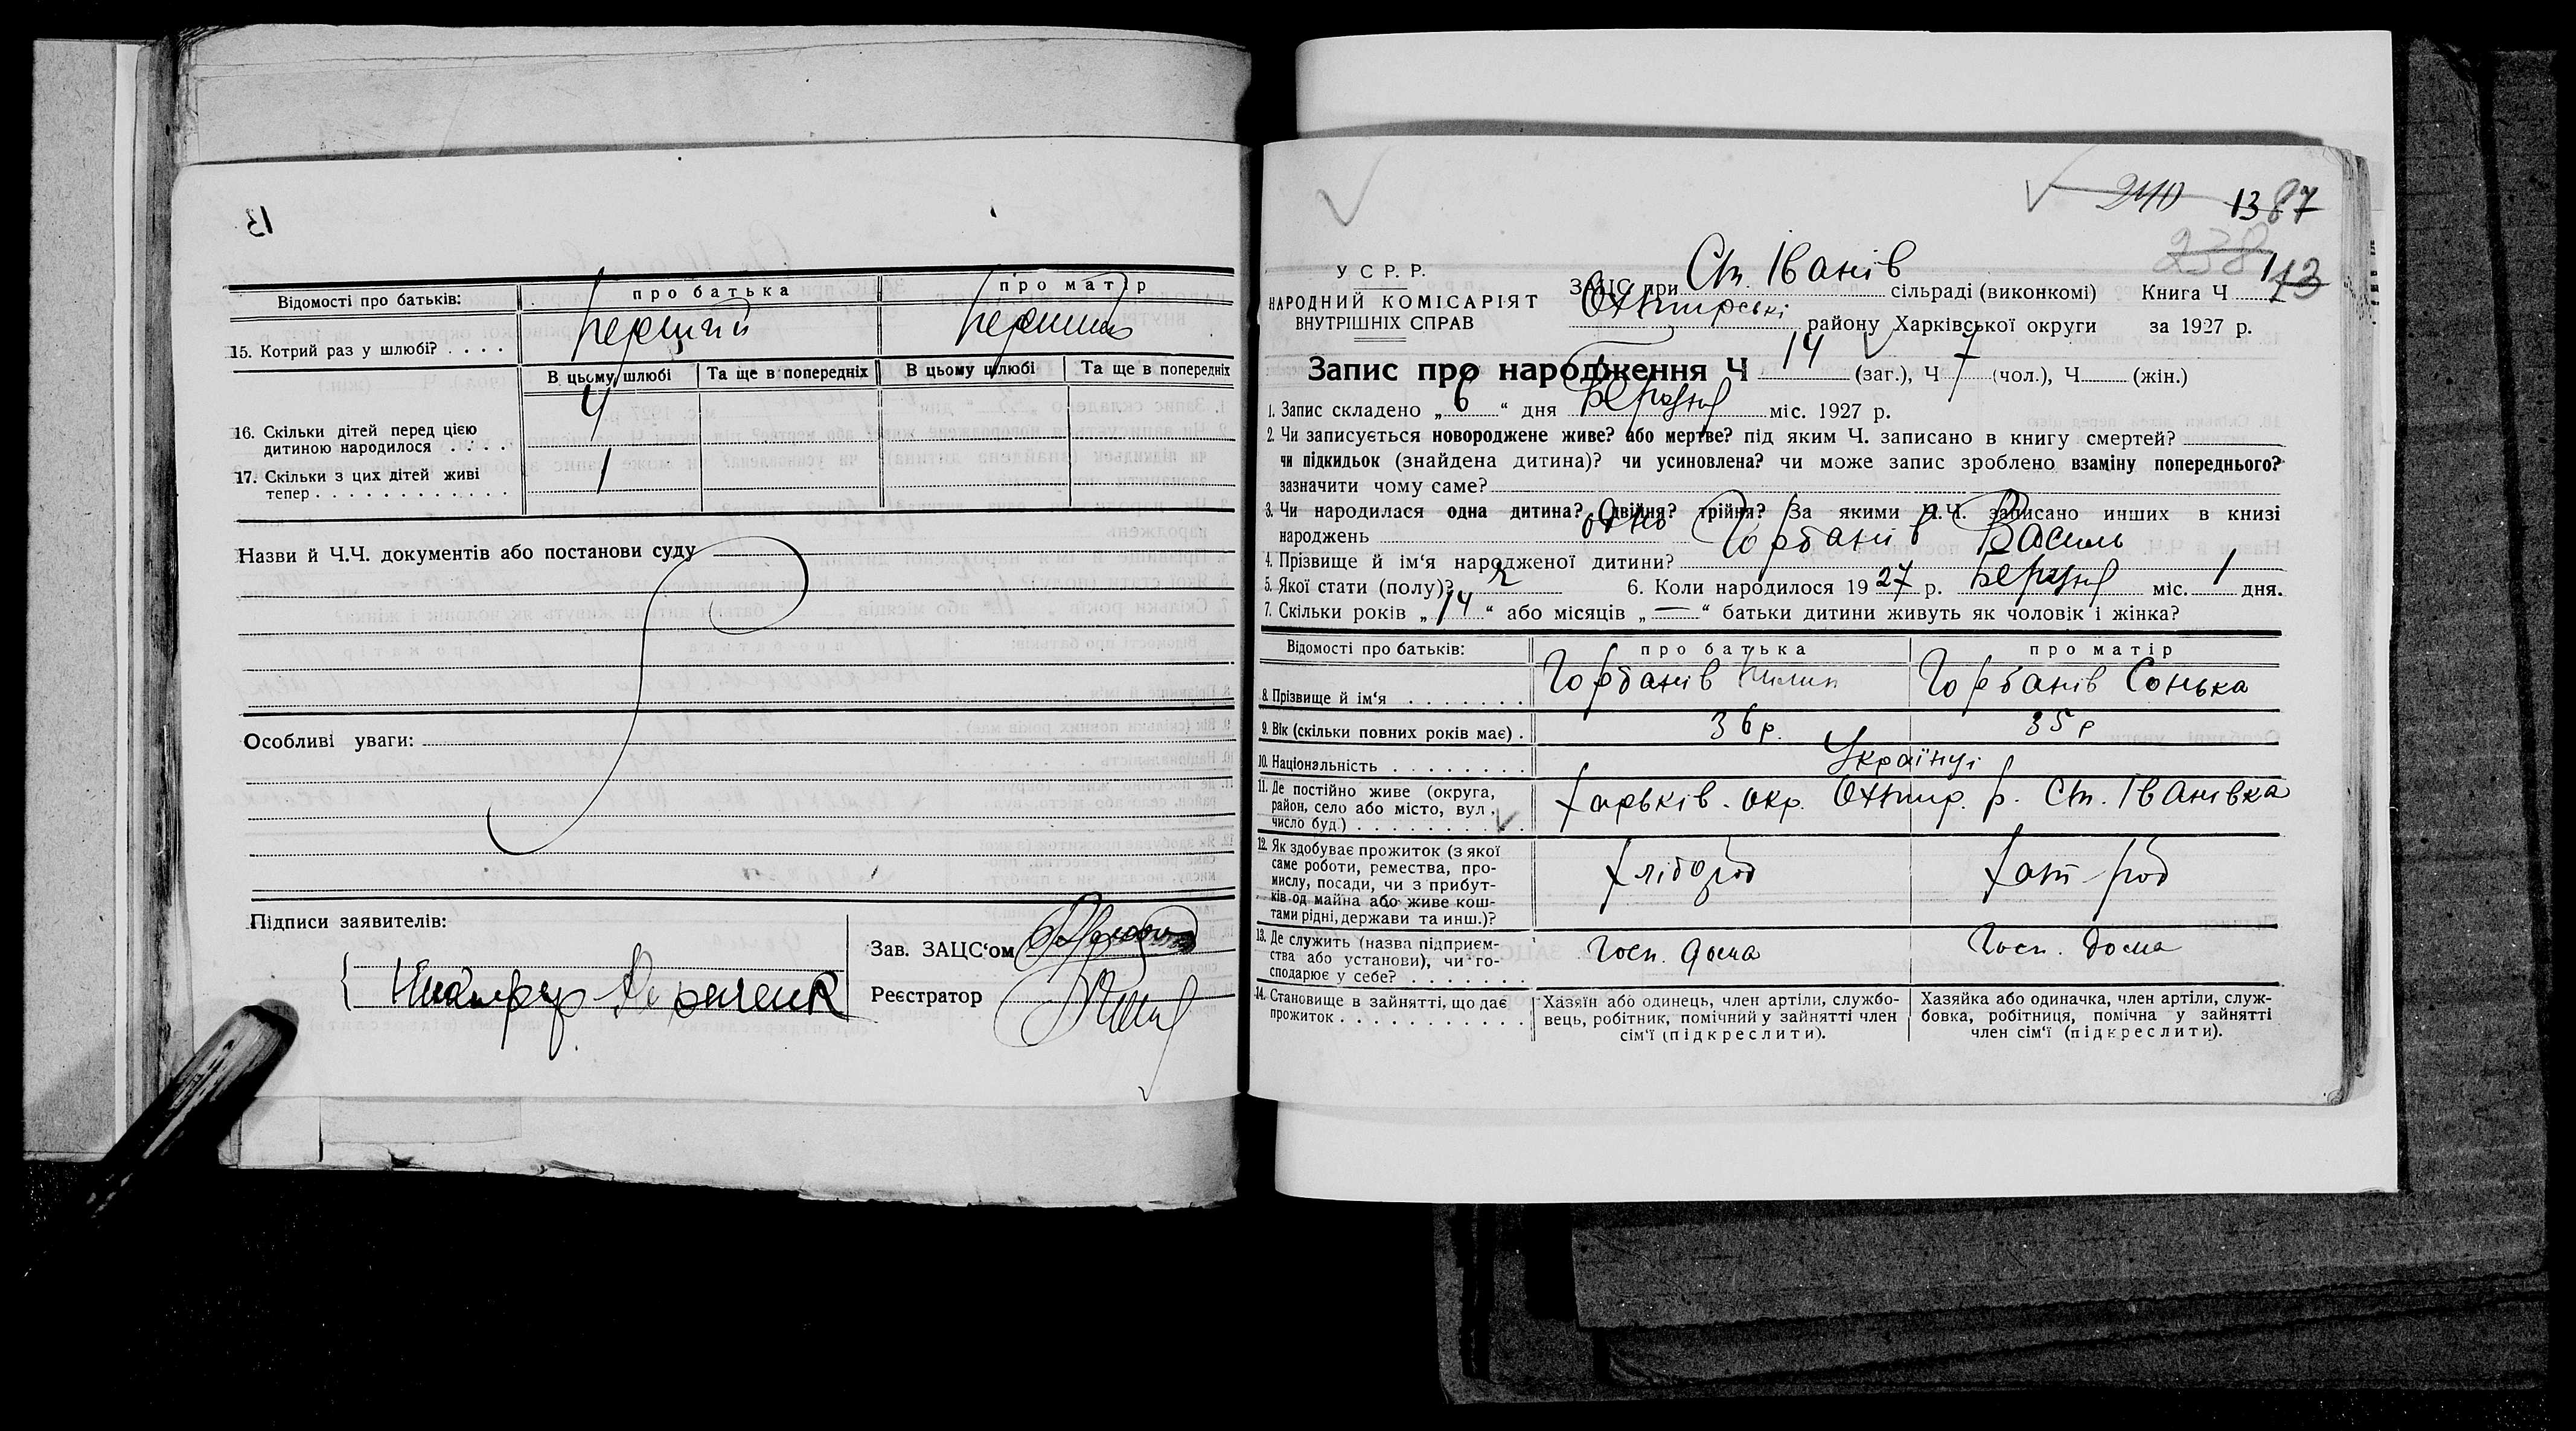 13
Відомості про батьків:
про батька
про матір
15. Котрий раз у шлюбі? . . . .
перший
перший
В цьому шлюбі
Та ще в попередніх
В цьому шлюбі
Та ще в попередніх
16. Скільки дітей перед цією
дитиною народилося . . . .
4
17. Скільки з цих дітей живі
тепер . . . . . . . . . . . .
1
Назви й Ч.Ч. документів або постанови суду
Особливі уваги:
Підписи заявителів:
Зав. ЗАЦС‘ом
Реєстратор
240 1387
238
113
У С Р. Р.
НАРОДНИЙ КОМІСАРІЯТ
ВНУТРІШНІХ СПРАВ
ЗАЦС при Ст. Іванів сільраді (виконкомі) Книга Ч 1
Охтирські району Харківської округи за 1927 р.
Запис про народження Ч 14 (заг.), Ч 7 (чол.), Ч (жін.)
1. Запис складено „ 6 “ дня Березня міс. 1927 р.
2. Чи записується новороджене живе? або мертве? під яким Ч. записано в книгу смертей?
чи підкидьок (знайдена дитина)? чи усиновлена? чи може запис зроблено взаміну попереднього?
зазначити чому саме?
3. Чи народилася одна дитина? Двійня? трійня? За якими Ч.Ч. записано инших в книзі
народжень
4. Прізвище й ім‘я народженої дитини? Горбанів Василь
5. Якої стати (полу)? ч 6. Коли народилося 1927 р. Березня міс. 1 дня.
7. Скільки років „ 14 “ або місяців „ — “ батьки дитини живуть як чоловік і жінка?
Відомості про батьків:
про батька
про матір
8. Прізвище й ім‘я . . . . . . .
Горбанів Пилип
Горбанів Сонька
9. Вік (скільки повних років має) .
36 р.
35 р
10. Національність . . . . . . . .
Українці
11. Де постійно живе (округа,
район, село або місто, вул.,
число буд.) . . . . . . . . .
Харьків. окр. Охтир. р. Ст. Іванівка
12. Як здобуває прожиток (з якої
саме роботи, ремества, про-
мислу, посади, чи з прибут-
ків од майна або живе кош-
тами рідні, держави та инш.)?
хлібороб
хат-роб
13. Де служить (назва підприєм-
ства або установи), чи го-
сподарює у себе? . . . . . . .
Госп. дома
Госп. дома
14. Становище в зайнятті, що дає
прожиток . . . . . . . . . . .
Хазяїн або одинець, член артіли, службо-
вець, робітник, помічний у зайнятті член
сім‘ї (підкреслити).
Хазяйка або одиначка, член артіли, служ-
бовка, робітниця, помічна у зайнятті
член сім‘ї (підкреслити).